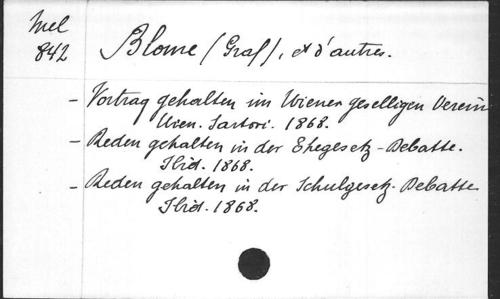 Mel
842
Blome (Graf), et d'autres.
- Vortrag gehalten im Wiener geselligen Verein
Wien. Sartori. 1868.
- Reden gehalten in der Ehegesetz-Debatte.
Ibid. 1868.
- Reden gehalten in der Schulgesetz-Debatte
Ibid. 1868.